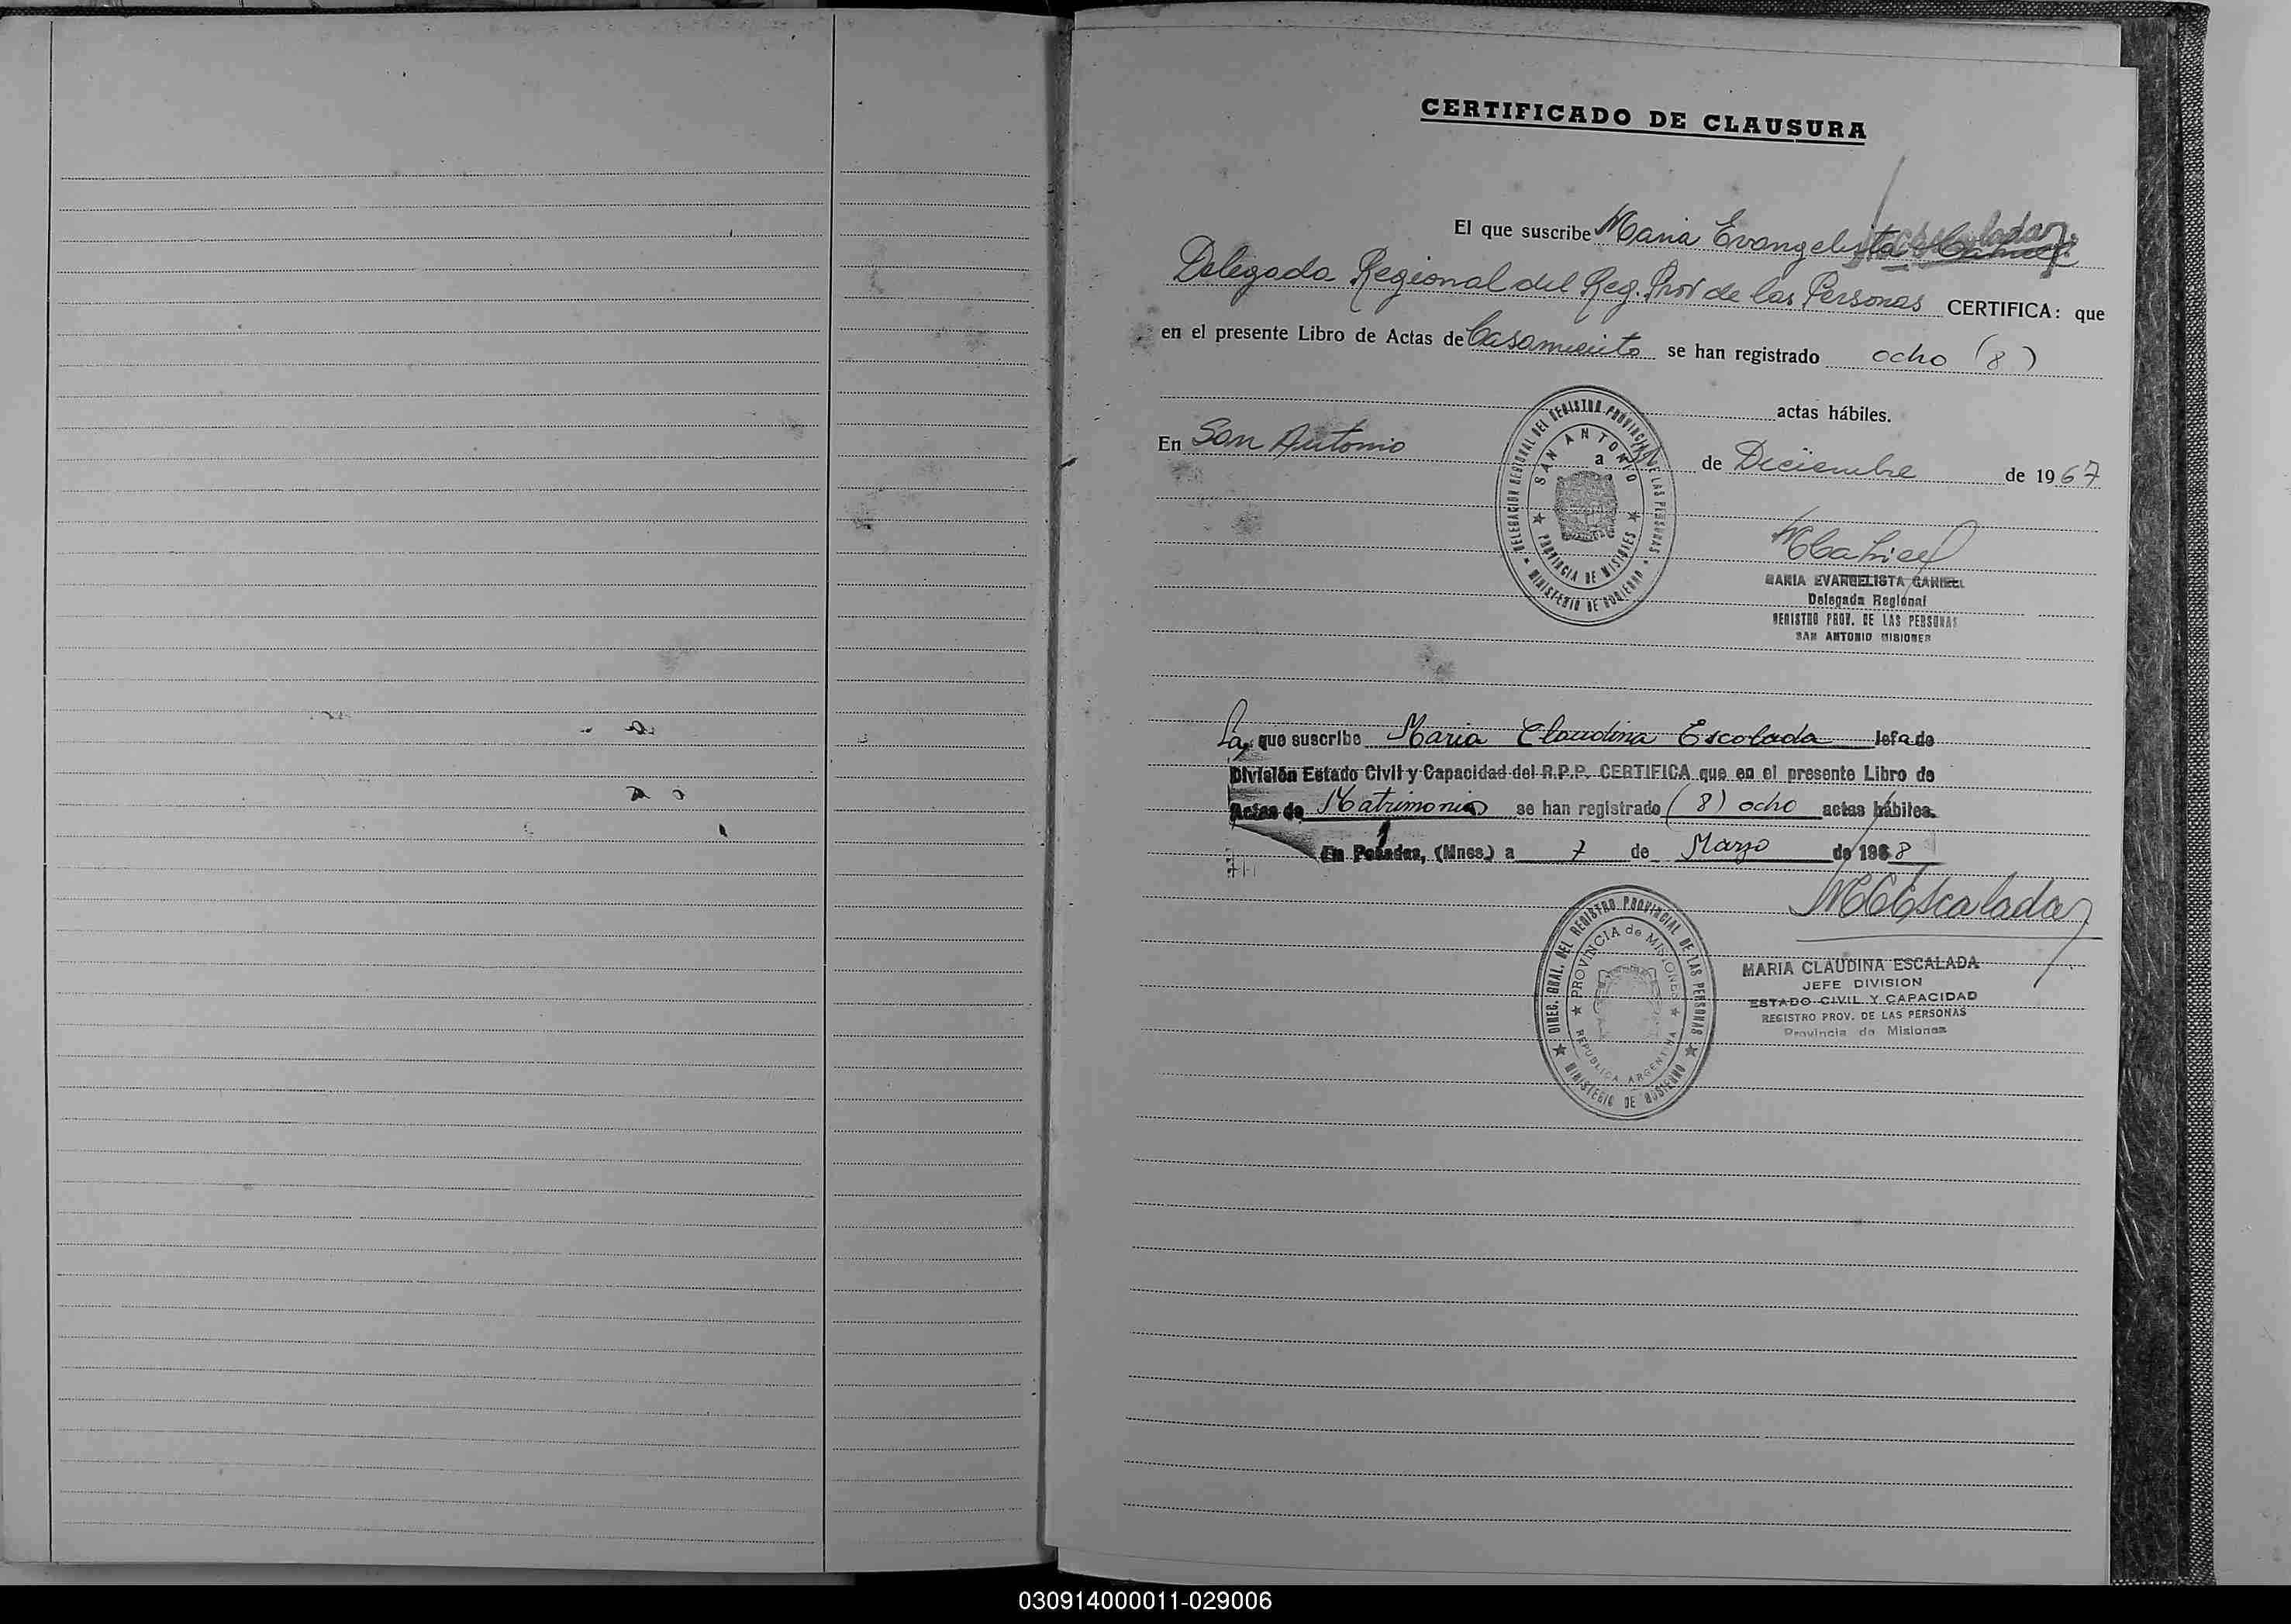 CERTIFICADO DE CLAUSURA
El que suscribe Maria Evangelista
Delegada Regional del Reg. Prov de las Personas CERTIFICA: que
en el presente Libro de Actas de Casamiento se han registrado ocho (8)
actas hábiles.
En San Antonio a de Diciembre de 1967
DELEGACION REGIONAL DEL REGISTRO PROVINCIAL DE LAS PERSONAS
MINISTERIO DE GOBIERNO
SAN ANTONIO
PROVINCIA DE MISIONES
MARIA EVANGELISTA CANIEL
Delegada Regional
REGISTRO PROV. DE LAS PERSONAS
SAN ANTONIO MISIONES
La que suscribe Maria Claudina Escalada Jefa de
División Estado Civil y Capacidad del R.P.P. CERTIFICA que en el presente Libro de
Actas de Matrimonios se han registrado (8) ocho actas hábiles.
En Posadas, (Mnes.) a 7 de Marzo de 1968
MCEscalada
DIREC. GRAL. DEL REGISTRO PROVINCIAL DE LAS PERSONAS
MINISTERIO DE GOBIERNO
PROVINCIA de MISIONES
REPUBLICA ARGENTINA
MARIA CLAUDINA ESCALADA
JEFE DIVISION
ESTADO CIVIL Y CAPACIDAD
REGISTRO PROV. DE LAS PERSONAS
Provincia de Misiones
030914000011-029006